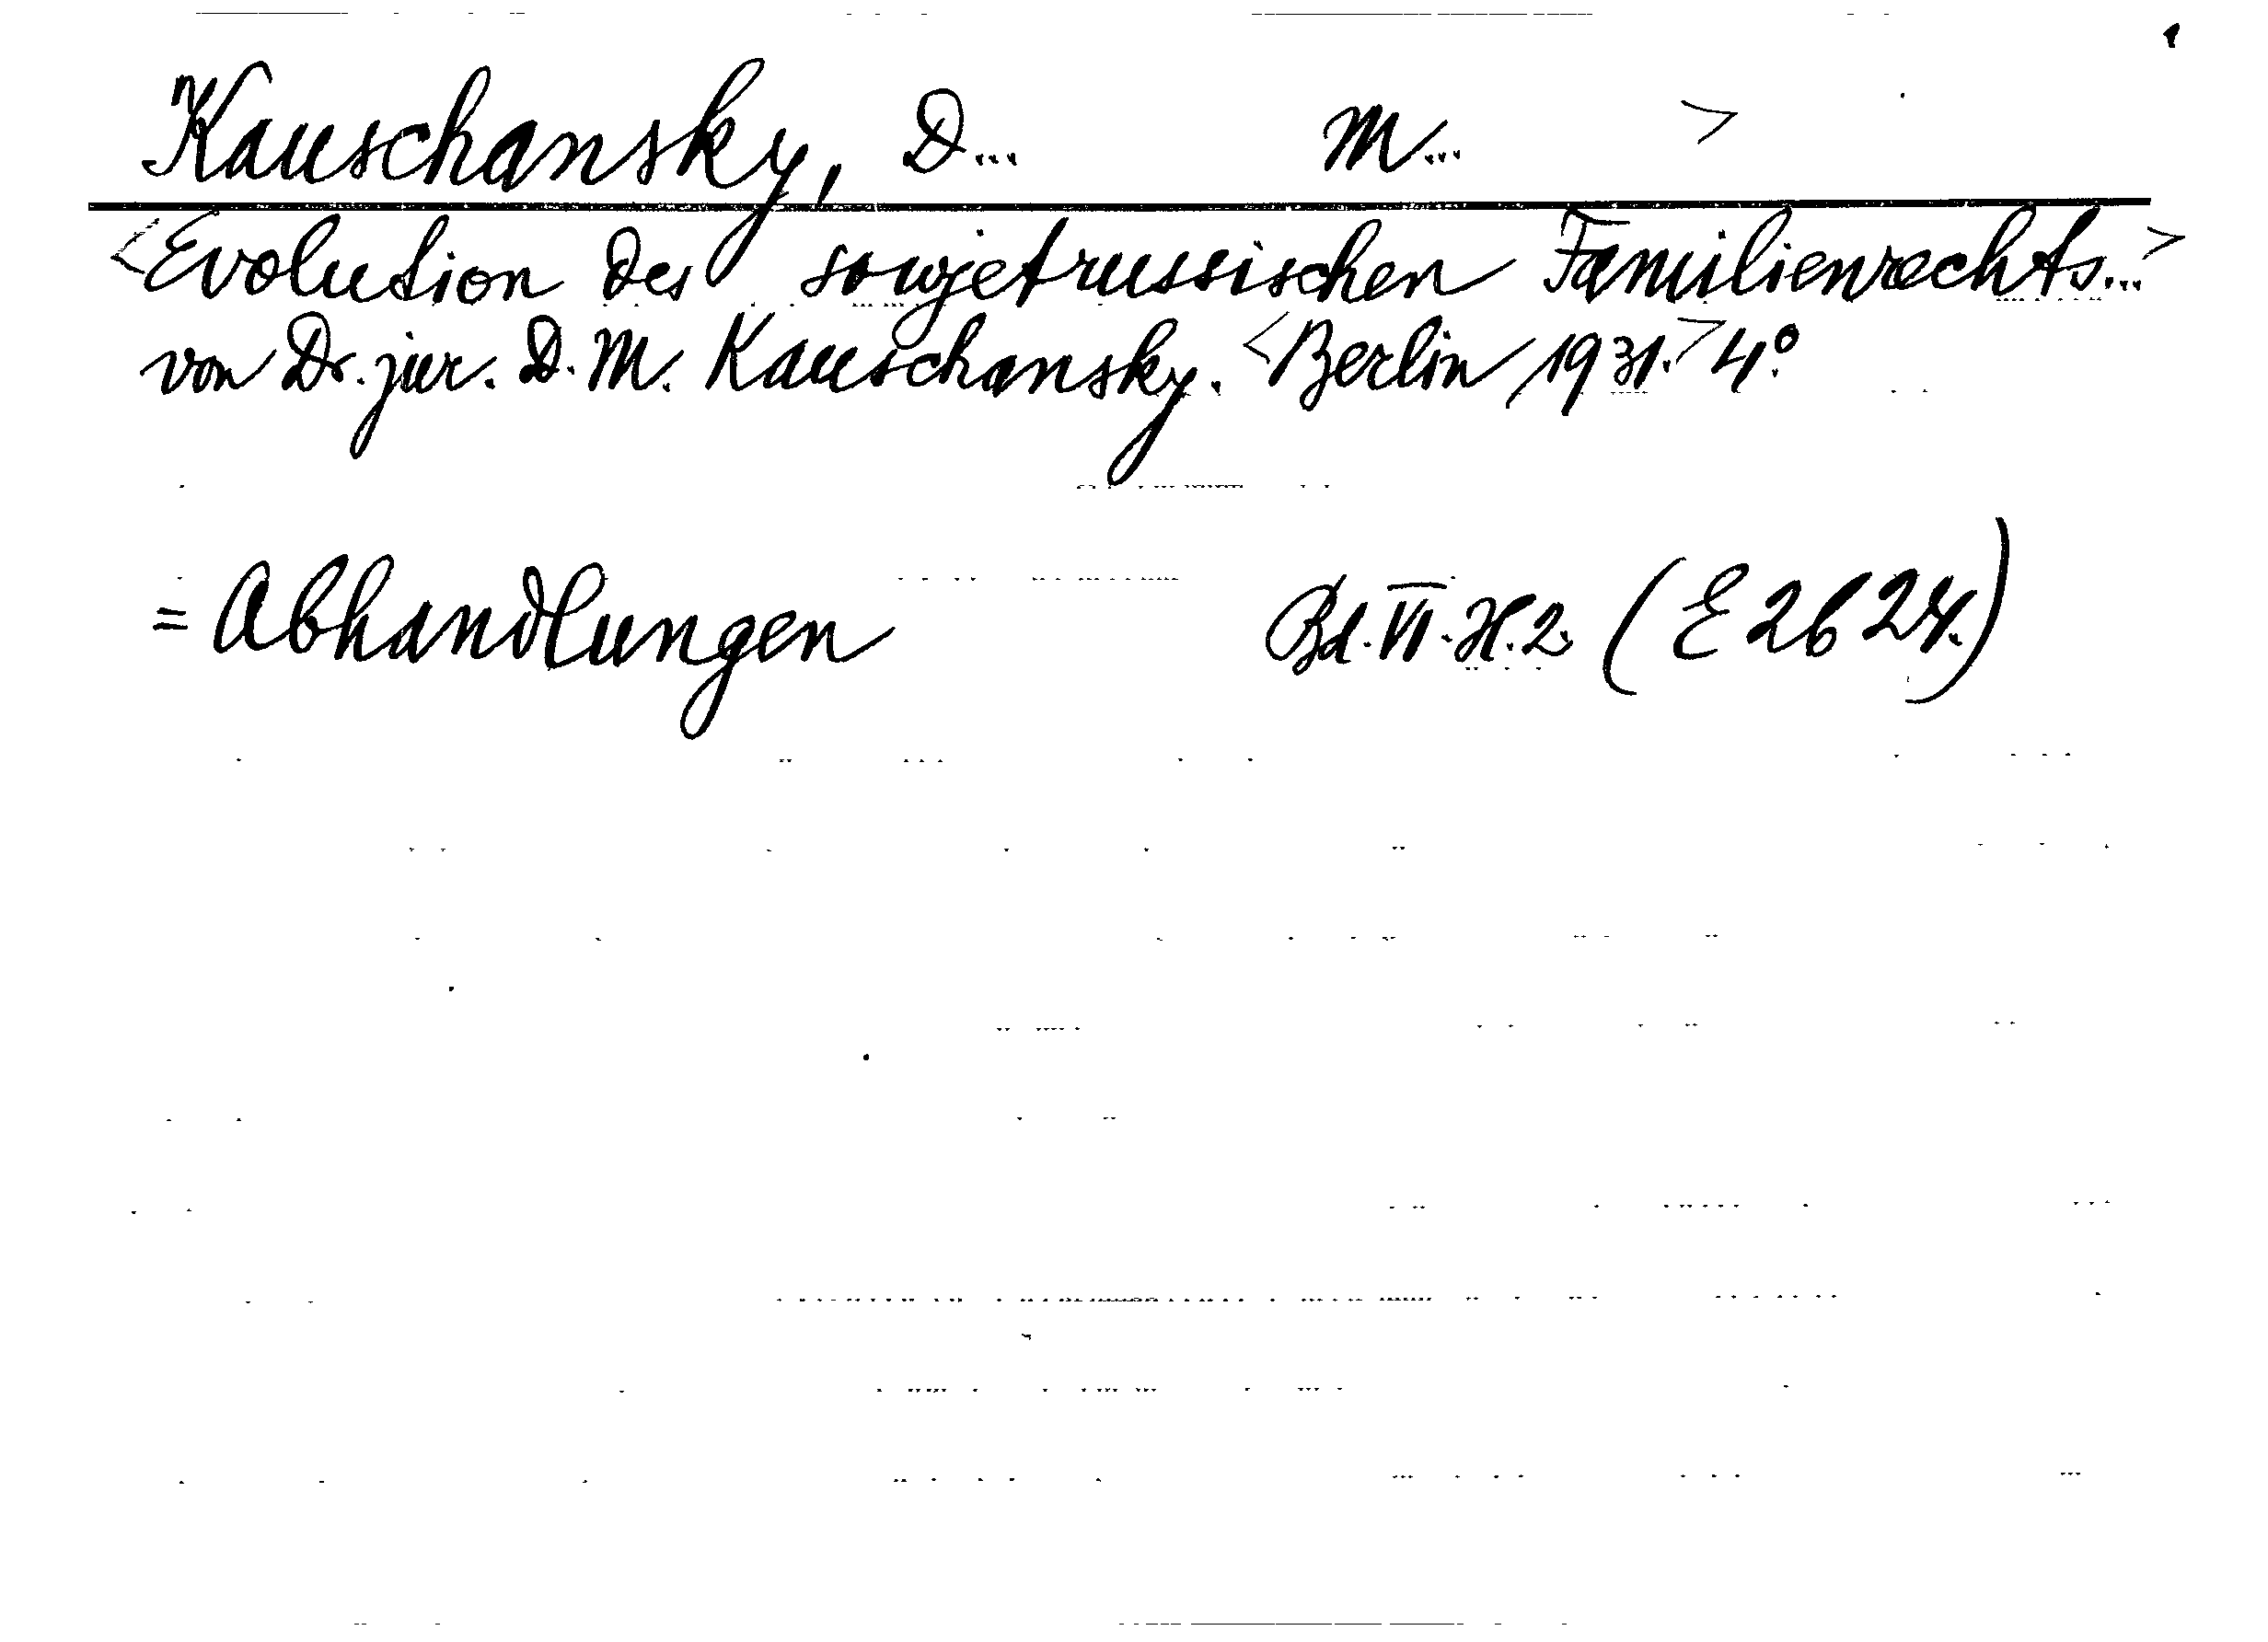 Kauschansky, D... M... >
<Evolution des sowjetrussischen Familienrechts...>
von Dr. jur. D. M. Kauschansky. <Berlin 1931.> 4.°
= Abhandlungen Bd. VI. H. 2. (E 2624.)